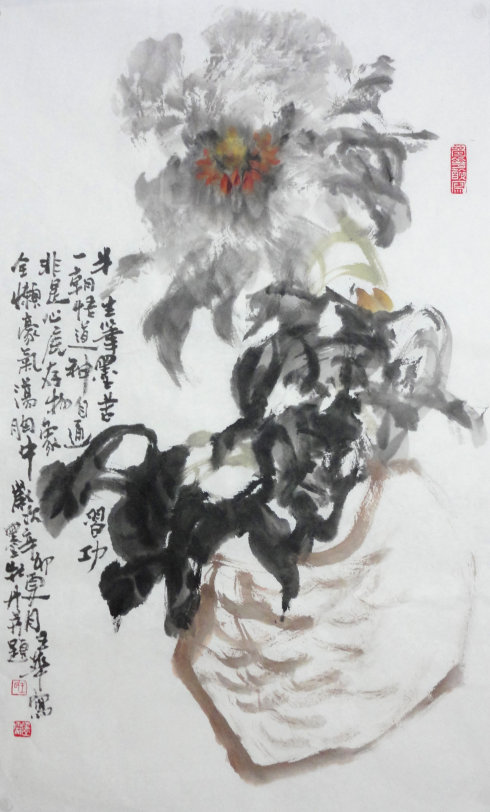 半生筆墨苦習功
一朝悟道神自通
非是心底存物象
全懶豪氣蕩胸中 歲次辛卯夏月王華寫
墨牡丹并題